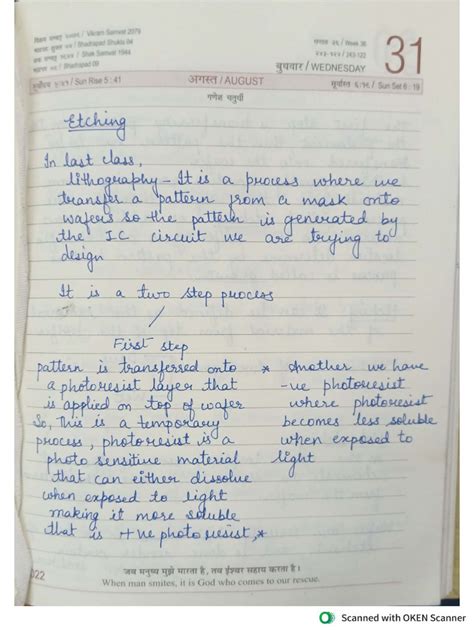 विक्रम सम्वत् २०७९ / Vikram Samvat 2079
भाद्रपद शुक्ल ०४ / Bhadrapad Shukla 04
शक सम्वत् १९४४ / Shak Samvat 1944
भाद्रपद ०९ / Bhadrapad 09
सप्ताह - ३६ / Week 36
२४३-१२२ / 243-122
बुधवार / WEDNESDAY
31
सूर्योदय ५:४१ / Sun Rise 5 : 41
अगस्त / AUGUST
सूर्यास्त ६:१९ / Sun Set 6 : 19
गणेश चतुर्थी
Etching
In last class,
lithography - It is a process where we
transfer a pattern from a mask onto
wafers so the pattern is generated by
the I.C circuit we are trying to
design
It is a two step process
First step
pattern is transferred onto
a photoresist layer that
is applied on top of wafer
So, This is a temporary
process, photoresist is a
photo sensitive material
that can either dissolve
when exposed to light
making it more soluble
that is +ve photoresist, *
* Another we have
-ve photoresist
where photoresist
becomes less soluble
when exposed to
light
2022
जब मनुष्य मुझे मारता है, तब ईश्वर सहाय करता है।
When man smites, it is God who comes to our rescue.
Scanned with OKEN Scanner